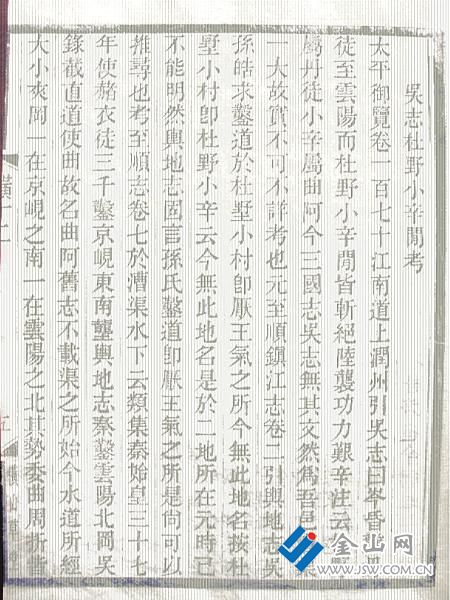 吳志杜野小辛閒考
太平御覽卷一百七十江南道上潤州引吳志曰岑昏
徒至雲陽而杜野小辛閒皆斬絕陸襲功力艱辛注云
屬丹徒小辛屬曲阿今三國志吳志無其文然爲吾邑
一大故實不可不詳考也元至順鎭江志卷二引輿地志吳
孫皓求鑿道於杜墅小村卽厭王氣之所今無此地名按杜
墅小村卽杜野小辛云今無此地名是於二地所在元時已
不能明然輿地志固言孫氏鑿道卽厭王氣之所是尙可以
推尋也考至順志卷七於漕渠水下云類集秦始皇三十七
年使赭衣徒三千鑿京峴東南壟輿地志秦鑿雲陽北岡吳
錄截直道使曲故名曲阿舊志不載渠之所始今水道所經
大小夾岡一在京峴之南一在雲陽之北其勢委曲周折
橫
金山网
WWW.JSW.COM.CN